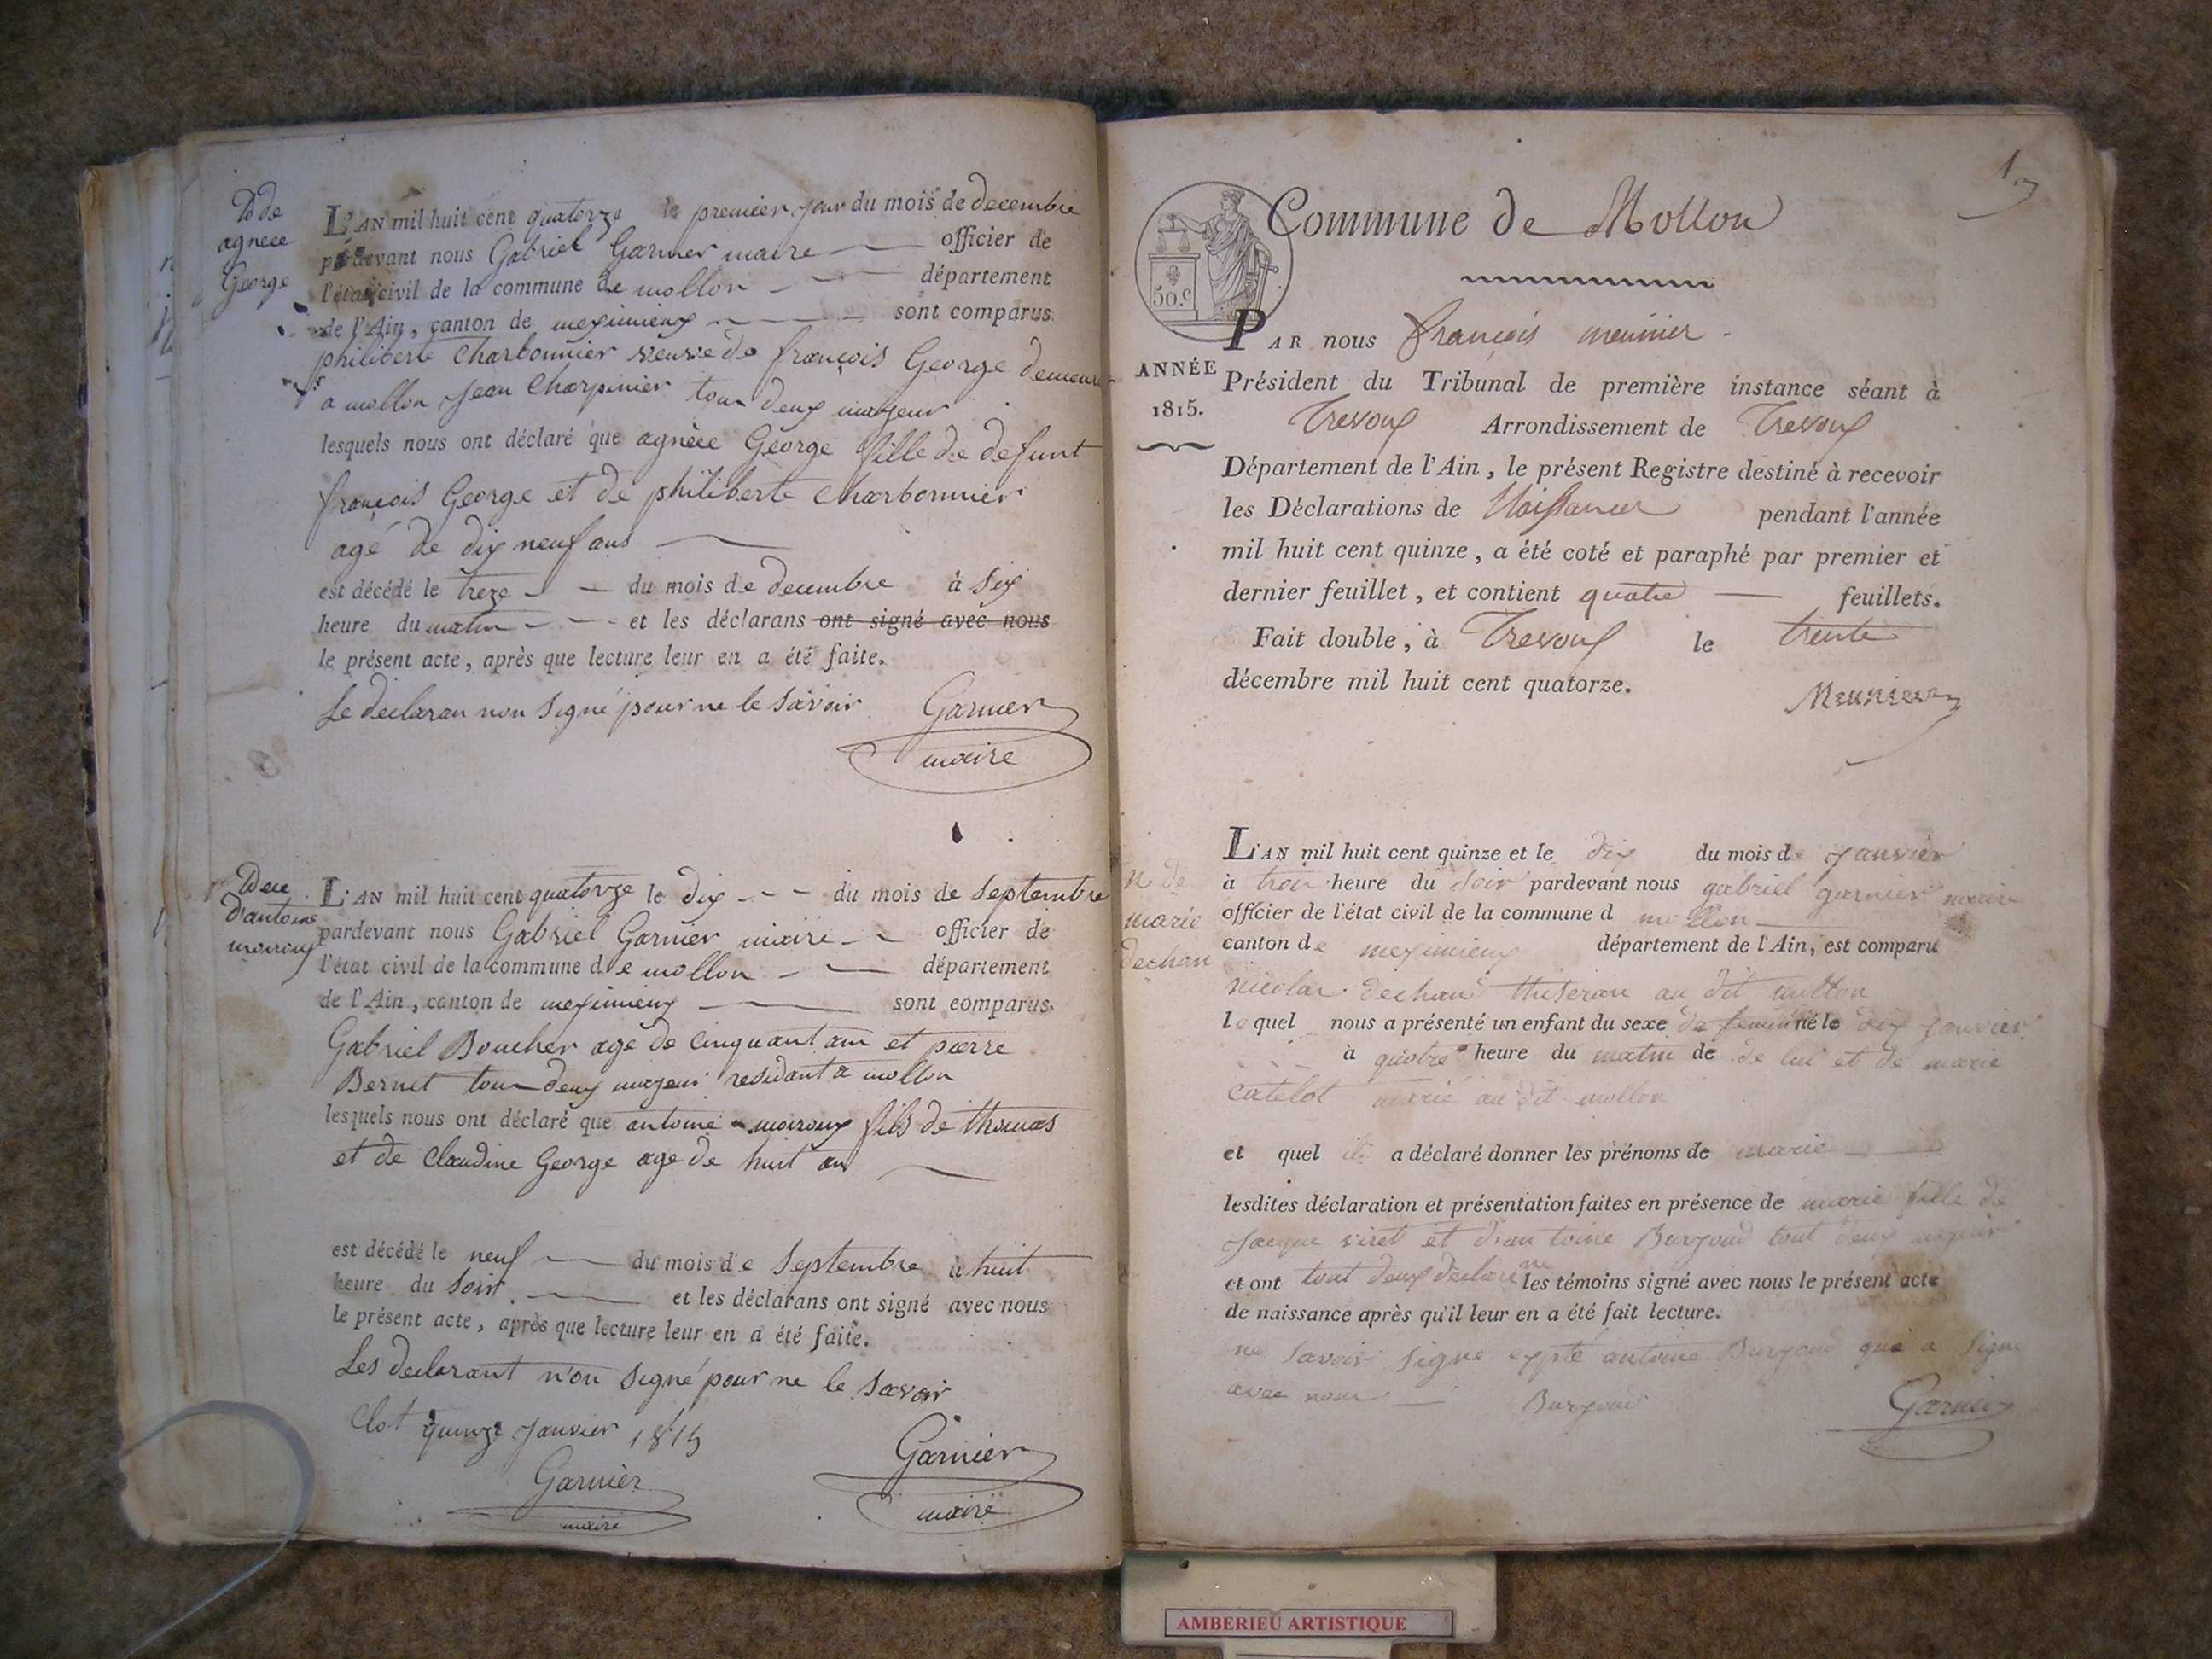 D de
agnece
George
L'AN mil huit cent quatorze le premier jour du mois de decembre
pardevant nous Gabriel Garnier maire officier de
l'état civil de la commune de mollon département
de l'Ain, canton de meximieux sont comparus
philiberte Charbonnier veuve de françois George demeure
a mollon Jean Charpinier tour deux majeur
lesquels nous ont déclaré que agnèce George fille de defunt
françois George et de philiberte Charbonnier
agé de dix neuf ans
est décédé le treze du mois de decembre à six
heure du matin et les déclarans ont signé avec nous
le présent acte, après que lecture leur en a été faite.
Le declaran non Signé pour ne le Savoir Garnier
maire
Dece
d'antoine
moiroux
L'AN mil huit cent quatorze le dix du mois de Septembre
pardevant nous Gabriel Garnier maire officier de
l'état civil de la commune de mollon département
de l'Ain, canton de meximieux sont comparus
Gabriel Boucher age de Cinquant ans et pierre
Bernet tour deux majeur residant a mollon
lesquels nous ont déclaré que antoine moiroux fils de thomas
et de Claudine George age de huit an
est décédé le neuf du mois de Septembre à huit
heure du Soir et les déclarans ont signé avec nous
le présent acte, après que lecture leur en a été faite.
Les declarant n'on Signé pour ne le Savoir
Clot quinze Janvier 1815
Garnier
maire
Garnier
maire
1
Commune de Mollon
50.c
PAR nous françois meunier
ANNÉE
1815.
Président du Tribunal de première instance séant à
Trevoux Arrondissement de Trevoux
Département de l'Ain, le présent Registre destiné à recevoir
les Déclarations de Naissances pendant l'année
mil huit cent quinze, a été coté et paraphé par premier et
dernier feuillet, et contient quatre feuillets.
Fait double, à Trevoux le trente
décembre mil huit cent quatorze.
Meunier
N de
marie
dechan
L'AN mil huit cent quinze et le dix du mois de Janvier
à trois heure du Soir pardevant nous gabriel garnier maire
officier de l'état civil de la commune d mollon
canton de meximieux département de l'Ain, est comparu
nicolas dechan au dit mollon
lequel nous a présenté un enfant du sexe de feminin né le dix janvier
à quatre heure du matin de de lui et de marie
Catelot marié au dit mollon
et quel il a déclaré donner les prénoms de marie
lesdites déclaration et présentation faites en présence de marie fille de
Jacque viret et d'antoine Burjoud tout deux majeur
et ont tout deux declaré ne les témoins signé avec nous le présent acte
de naissance après qu'il leur en a été fait lecture.
ne Savoir Signe expté antoine Burjoud qui a Signe
avec nous Burjoud Garnier
AMBERIEU ARTISTIQUE